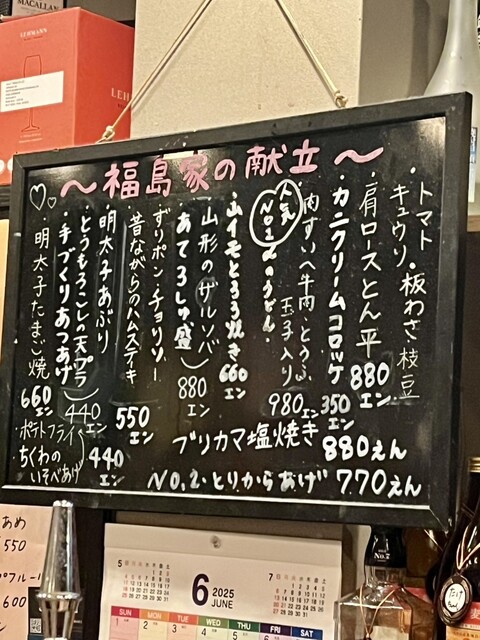 MACALLAN
LEHMANN
LEHM
～福島家の献立～
・トマト・板わさ・枝豆
キュウリ
・肩ロースとん平
880エン
・カニクリームコロッケ
350エン
・肉すい〈牛肉・とうふ
玉子入り
980エン
人気
No.1
のうどん・
・山イモとろろ焼き
660エン
・山形のザルソバ
・あてろしゅ盛
880エン
・ずりポン・チョリソー
・昔ながらのハムステキ
550エン
・明太子あぶり
・とうもろこしの天プラ
440エン
・手づくりあつあげ
・明太子たまご焼
660エン
・ポテトフライ
・ちくわのいそべあげ
440エン
ブリカマ塩焼き 880えん
No.2・とりからあげ 770えん
あめ
550
フルー
600
5
6
2025
JUNE
7
SUN MON TUE WED THU FRI SAT
1 2 3 4 5 6 7
No.7